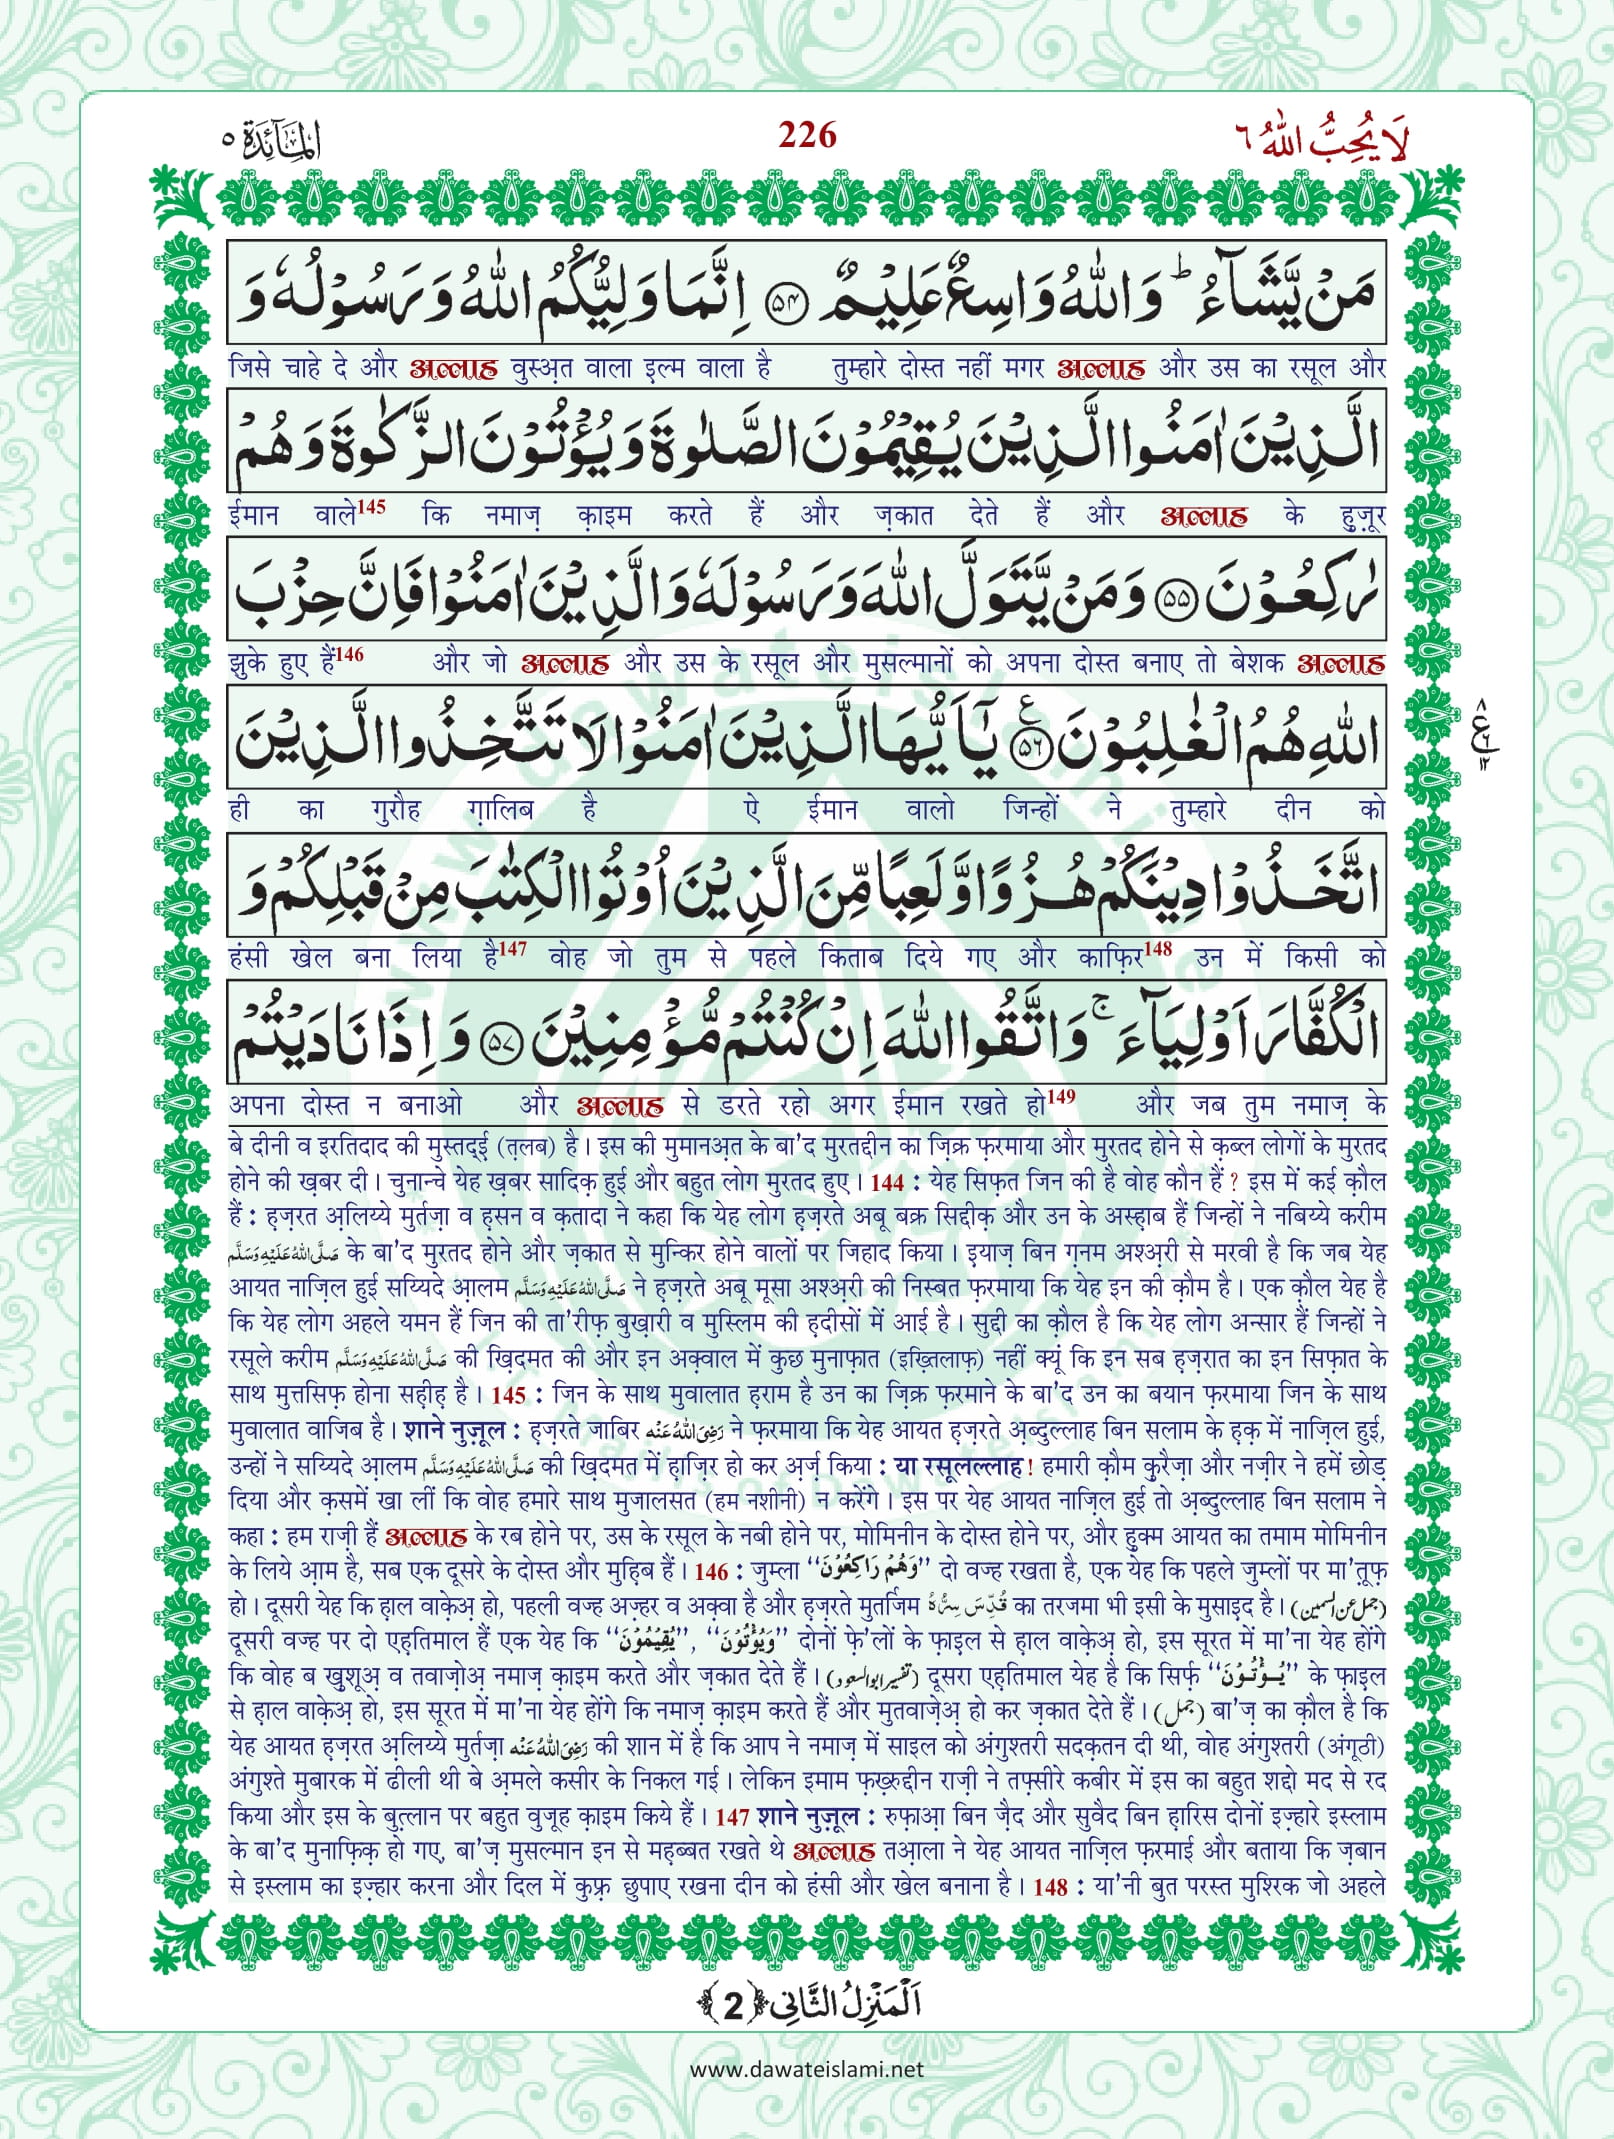 المَآئِدَة ۵
226
لَا يُحِبُّ اللهُ ٦
مَنْ يَّشَآءُ ؕ وَاللهُ وَاسِعٌ عَلِيْمٌ ﴿۵۴﴾ اِنَّمَا وَلِيُّكُمُ اللهُ وَرَسُوْلُهٗ وَ
जिसे चाहे दे और अल्लाह वुस्अ़त वाला इल्म वाला है तुम्हारे दोस्त नहीं मगर अल्लाह और उस का रसूल और
الَّذِيْنَ اٰمَنُوا الَّذِيْنَ يُقِيْمُوْنَ الصَّلٰوةَ وَيُؤْتُوْنَ الزَّكٰوةَ وَهُمْ
ईमान वाले145 कि नमाज़ क़ाइम करते हैं और ज़कात देते हैं और अल्लाह के हुज़ूर
رٰكِعُوْنَ ﴿۵۵﴾ وَمَنْ يَّتَوَلَّ اللهَ وَرَسُوْلَهٗ وَالَّذِيْنَ اٰمَنُوْا فَاِنَّ حِزْبَ
झुके हुए हैं146 और जो अल्लाह और उस के रसूल और मुसल्मानों को अपना दोस्त बनाए तो बेशक अल्लाह
اللهِ هُمُ الْغٰلِبُوْنَ ﴿۵۶﴾ ع يٰۤاَيُّهَا الَّذِيْنَ اٰمَنُوْا لَا تَتَّخِذُوا الَّذِيْنَ
٨ ع ٦ ١٢
ही का गुरौह ग़ालिब है ऐ ईमान वालो जिन्हों ने तुम्हारे दीन को
اتَّخَذُوْا دِيْنَكُمْ هُزُوًا وَّلَعِبًا مِّنَ الَّذِيْنَ اُوْتُوا الْكِتٰبَ مِنْ قَبْلِكُمْ وَ
हंसी खेल बना लिया है147 वोह जो तुम से पहले किताब दिये गए और काफ़िर148 उन में किसी को
الْكُفَّارَ اَوْلِيَآءَ ۚ وَاتَّقُوا اللهَ اِنْ كُنْتُمْ مُّؤْمِنِيْنَ ﴿۵۷﴾ وَاِذَا نَادَيْتُمْ
अपना दोस्त न बनाओ और अल्लाह से डरते रहो अगर ईमान रखते हो149 और जब तुम नमाज़ के
बे दीनी व इरतिदाद की मुस्तद्ई (त़लब) है। इस की मुमानअ़त के बा'द मुरतद्दीन का ज़िक्र फ़रमाया और मुरतद होने से क़ब्ल लोगों के मुरतद
होने की ख़बर दी। चुनान्चे येह ख़बर सादिक़ हुई और बहुत लोग मुरतद हुए। 144 : येह सिफ़त जिन की है वोह कौन हैं ? इस में कई क़ौल
हैं : ह़ज़रत अ़लिय्ये मुर्तज़ा व ह़सन व क़तादा ने कहा कि येह लोग ह़ज़रते अबू बक्र सिद्दीक़ और उन के अस्ह़ाब हैं जिन्हों ने नबिय्ये करीम
صَلَّى اللهُ عَلَيْهِ وَسَلَّم के बा'द मुरतद होने और ज़कात से मुन्किर होने वालों पर जिहाद किया। इयाज़ बिन ग़नम अश्अ़री से मरवी है कि जब येह
आयत नाज़िल हुई सय्यिदे आ़लम صَلَّى اللهُ عَلَيْهِ وَسَلَّم ने ह़ज़रते अबू मूसा अश्अ़री की निस्बत फ़रमाया कि येह इन की क़ौम है। एक क़ौल येह है
कि येह लोग अहले यमन हैं जिन की ता'रीफ़ बुख़ारी व मुस्लिम की ह़दीसों में आई है। सुद्दी का क़ौल है कि येह लोग अन्सार हैं जिन्हों ने
रसूले करीम صَلَّى اللهُ عَلَيْهِ وَسَلَّم की ख़िदमत की और इन अक़्वाल में कुछ मुनाफ़ात (इख़्तिलाफ़) नहीं क्यूं कि इन सब ह़ज़रात का इन सिफ़ात के
साथ मुत्तसिफ़ होना सह़ीह़ है। 145 : जिन के साथ मुवालात ह़राम है उन का ज़िक्र फ़रमाने के बा'द उन का बयान फ़रमाया जिन के साथ
मुवालात वाजिब है। शाने नुज़ूल : ह़ज़रते जाबिर رَضِىَ اللهُ عَنْه ने फ़रमाया कि येह आयत ह़ज़रते अ़ब्दुल्लाह बिन सलाम के ह़क़ में नाज़िल हुई,
उन्हों ने सय्यिदे आ़लम صَلَّى اللهُ عَلَيْهِ وَسَلَّم की ख़िदमत में ह़ाज़िर हो कर अ़र्ज़ किया : या रसूलल्लाह! हमारी क़ौम कुरैज़ा और नज़ीर ने हमें छोड़
दिया और क़समें खा लीं कि वोह हमारे साथ मुजालसत (हम नशीनी) न करेंगे। इस पर येह आयत नाज़िल हुई तो अ़ब्दुल्लाह बिन सलाम ने
कहा : हम राज़ी हैं अल्लाह के रब होने पर, उस के रसूल के नबी होने पर, मोमिनीन के दोस्त होने पर, और हुक्म आयत का तमाम मोमिनीन
के लिये आ़म है, सब एक दूसरे के दोस्त और मुह़िब हैं। 146 : जुम्ला “وَهُمْ رَاكِعُوْنَ” दो वज्ह रखता है, एक येह कि पहले जुम्लों पर मा'त़ूफ़
हो। दूसरी येह कि ह़ाल वाक़ेअ़ हो, पहली वज्ह अज़्हर व अक़्वा है और ह़ज़रते मुतर्जिम قُدِّسَ سِرُّهٗ का तरजमा भी इसी के मुसाइद है। (جمل عن السمين)
दूसरी वज्ह पर दो एह़तिमाल हैं एक येह कि “يُقِيْمُوْنَ”, “وَيُؤْتُوْنَ” दोनों फ़े'लों के फ़ाइल से ह़ाल वाक़ेअ़ हो, इस सूरत में मा'ना येह होंगे
कि वोह ब खुशूअ़ व तवाज़ोअ़ नमाज़ क़ाइम करते और ज़कात देते हैं। (تفسير ابوالسعود) दूसरा एह़तिमाल येह है कि सिर्फ़ “يُؤْتُوْنَ” के फ़ाइल
से ह़ाल वाक़ेअ़ हो, इस सूरत में मा'ना येह होंगे कि नमाज़ क़ाइम करते हैं और मुतवाज़ेअ़ हो कर ज़कात देते हैं। (جمل) बा'ज़ का क़ौल है कि
येह आयत ह़ज़रत अ़लिय्ये मुर्तज़ा رَضِىَ اللهُ عَنْه की शान में है कि आप ने नमाज़ में साइल को अंगुश्तरी सदक़तन दी थी, वोह अंगुश्तरी (अंगूठी)
अंगुश्ते मुबारक में ढीली थी बे अ़मले कसीर के निकल गई। लेकिन इमाम फ़ख़्रुद्दीन राज़ी ने तफ़्सीरे कबीर में इस का बहुत शद्दो मद से रद
किया और इस के बुत़्लान पर बहुत वुजूह क़ाइम किये हैं। 147 शाने नुज़ूल : रुफ़ाआ़ बिन ज़ैद और सुवैद बिन ह़ारिस दोनों इज़्हारे इस्लाम
के बा'द मुनाफ़िक़ हो गए, बा'ज़ मुसल्मान इन से मह़ब्बत रखते थे अल्लाह तआ़ला ने येह आयत नाज़िल फ़रमाई और बताया कि ज़बान
से इस्लाम का इज़्हार करना और दिल में कुफ़्र छुपाए रखना दीन को हंसी और खेल बनाना है। 148 : या'नी बुत परस्त मुश्रिक जो अहले
اَلْمَنْزِلُ الثَّانِى ﴿2﴾
www.dawateislami.net